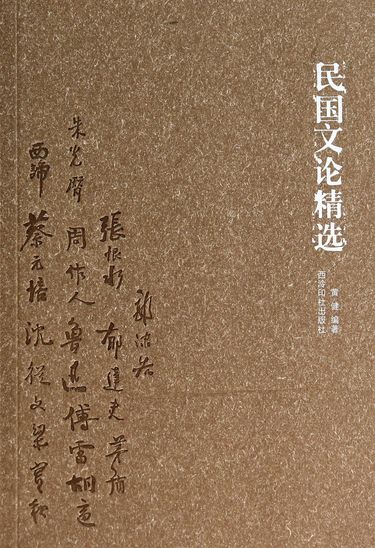 民国文论精选
黄健 编著
西泠印社出版社
郭沫若
張恨水 郁達夫 茅盾
朱光潛 周作人 魯迅 傅雷 胡適
西諦 蔡元培 沈從文 梁實秋